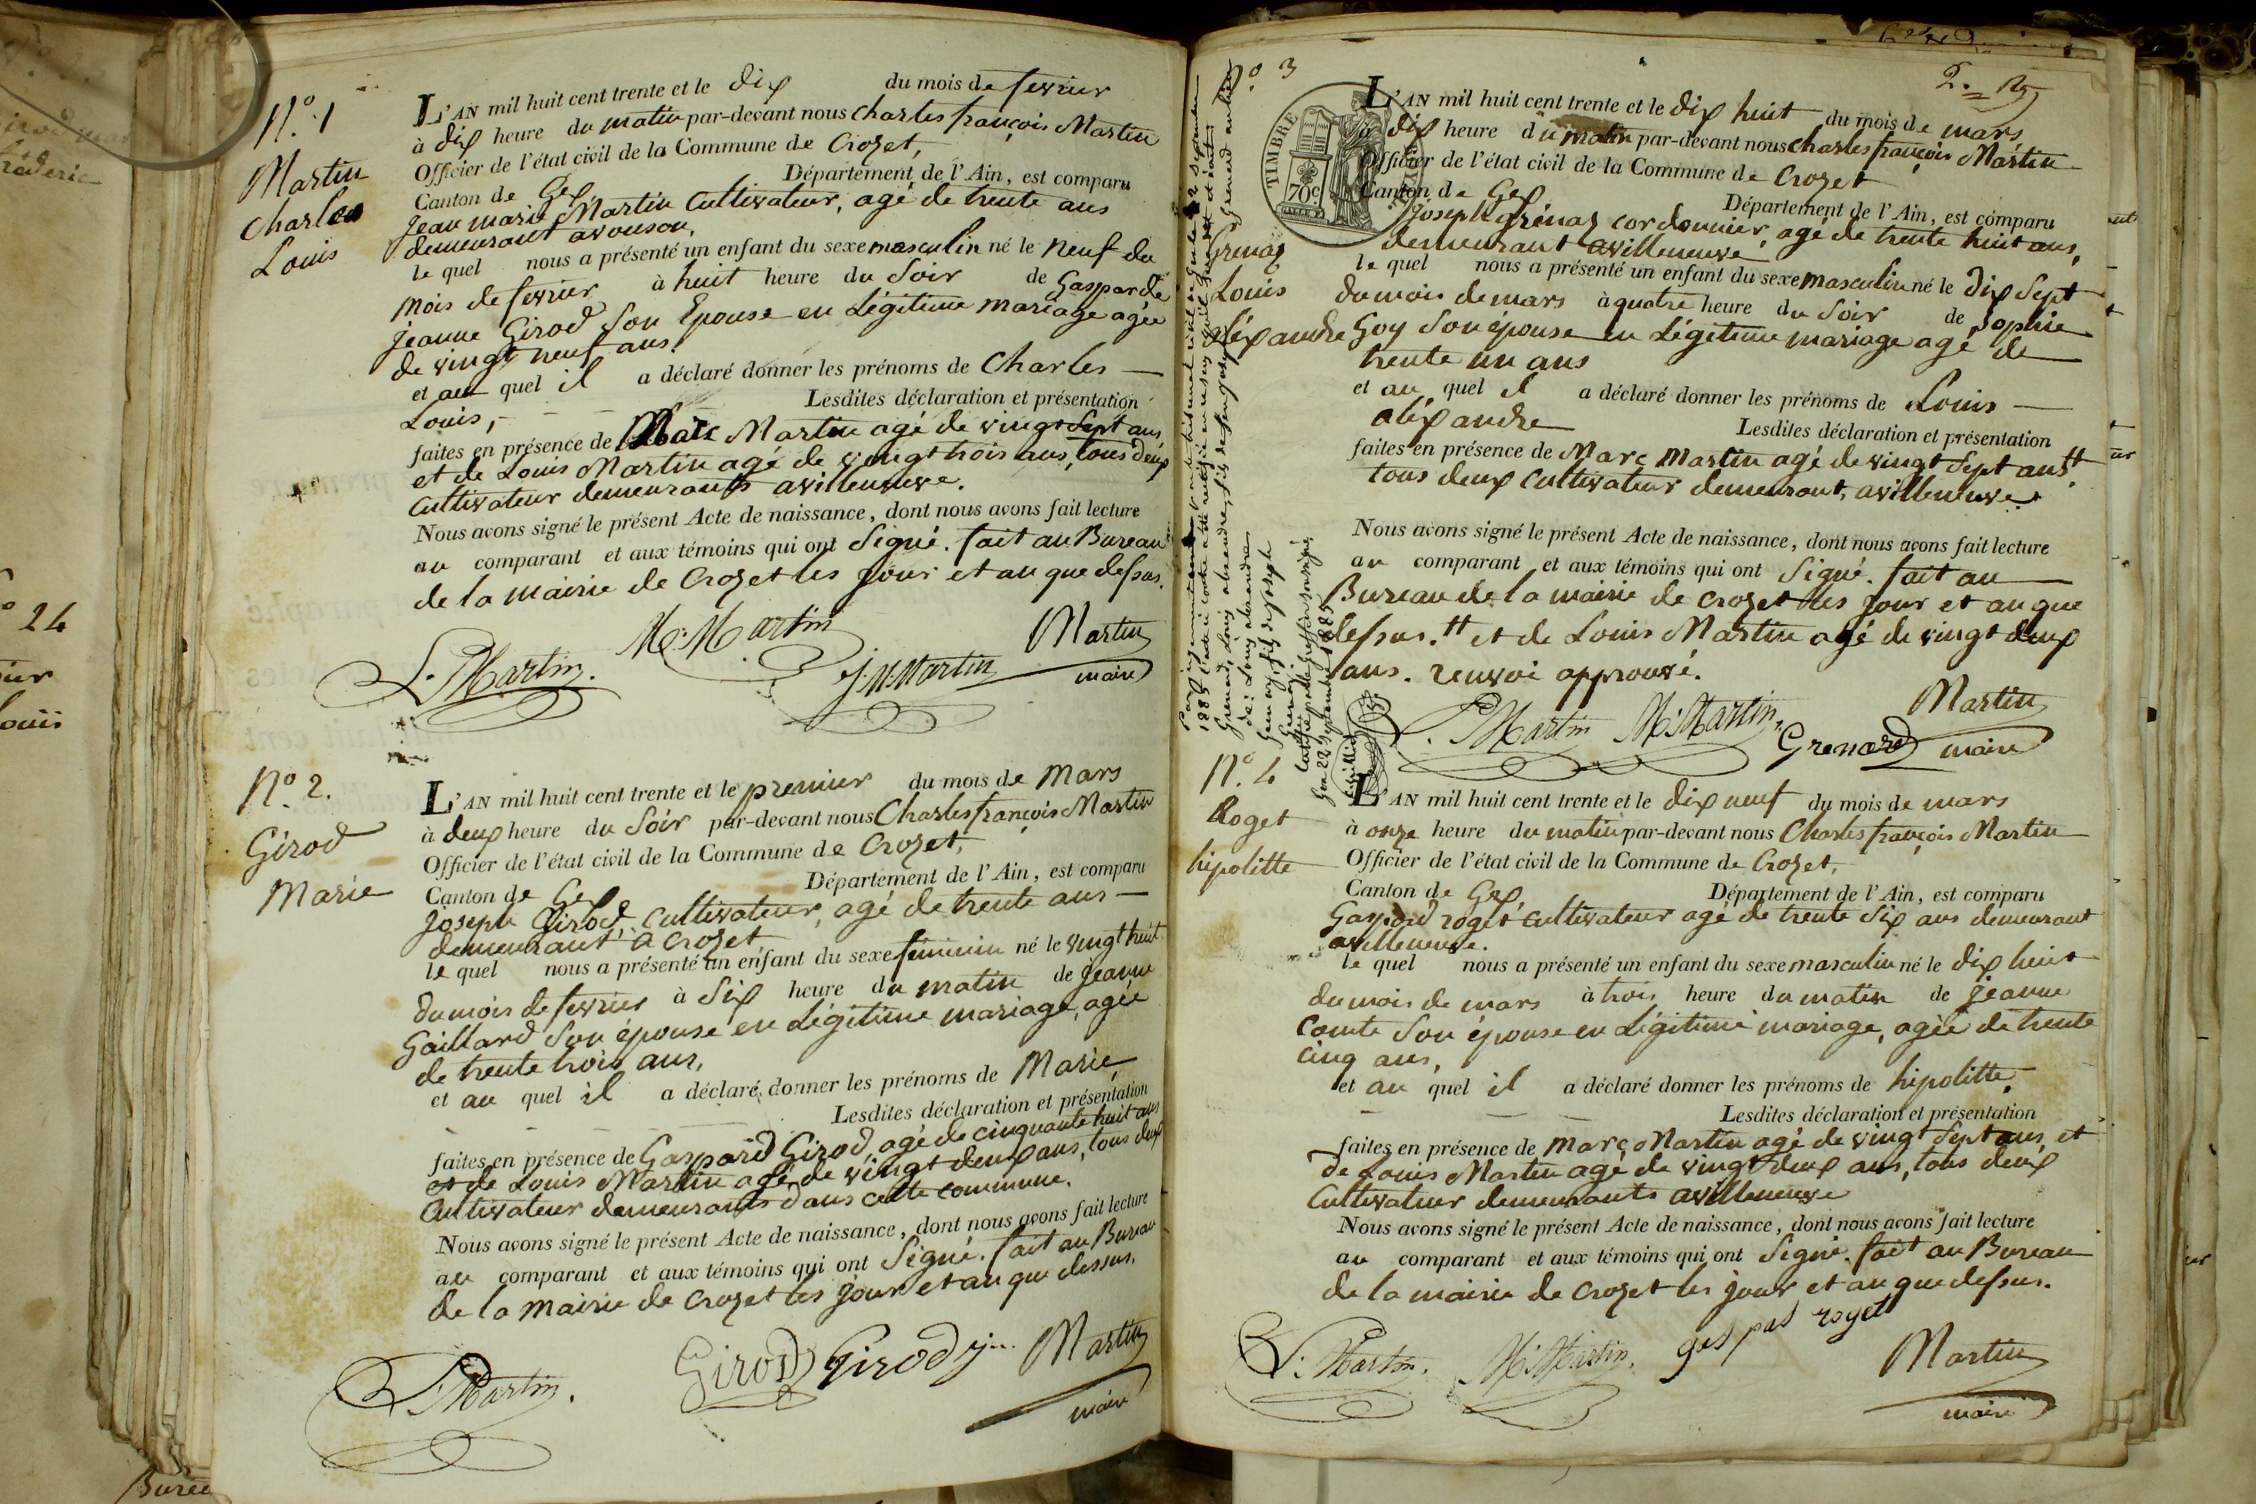 N.o 1
Martin
Charles
Louis
L'AN mil huit cent trente et le dix du mois de fevrier
à dix heure du matin par-devant nous charles françois Martin
Officier de l'état civil de la Commune de Crozet,
Canton de Gex Département de l'Ain, est comparu
jean marie Martin Cultivateur, agé de trente ans
demeurant avouson,
le quel nous a présenté un enfant du sexe masculin né le neuf du
mois de fevrier à huit heure du Soir de Gasparde
jeanne Girod Son Epouse en Légitime mariage agée
de vingt neuf ans.
et au quel il a déclaré donner les prénoms de Charles —
Louis, - Lesdites déclaration et présentation
faites en présence de Marc Martin agé de vingt Sept ans,
et de Louis Martin agé de vingt trois ans, tous deux
Cultivateur demeurants avilleneuve.
Nous avons signé le présent Acte de naissance, dont nous avons fait lecture
au comparant et aux témoins qui ont Signé. fait au Bureau
de la mairie de Crozet les jour et an que dessus.
L. Martin. M. Martin J. M Martin Martin
maire
N.o 2.
Girod
Marie
L'AN mil huit cent trente et le premier du mois de Mars
à deux heure du Soir par-devant nous Charles françois Martin
Officier de l'état civil de la Commune de Crozet,
Canton de Gex Département de l'Ain, est comparu
joseph Girod, Cultivateur, agé de trente ans —
demeurant a crozet
le quel nous a présenté un enfant du sexe féminin né le vingt huit
du mois de fevrier à Six heure du matin de jeanne
Gaillard Son épouse en Légitime mariage, agée
de trente trois ans,
et au quel il a déclaré donner les prénoms de Marie,
Lesdites déclaration et présentation
faites en présence de Gaspard Girod, agé de cinquante huit ans
et de Louis Martin agé de vingt deux ans, tous deux
Cultivateur demeurants dans cette commune.
Nous avons signé le présent Acte de naissance, dont nous avons fait lecture
au comparant et aux témoins qui ont Signé. fait au Bureau
de la Mairie de Crozet les jour et an que dessus.
L. Martin. Girod Girod Martin
maire
N.o 3
Grenaz
Louis
aléxandre
TIMBRE
70c
L'AN mil huit cent trente et le dix huit du mois de mars
à dix heure du matin par-devant nous charles françois Martin
Officier de l'état civil de la Commune de Crozet
Canton de Gex Département de l'Ain, est comparu
joseph grénaz cordonnier, agé de trente huit ans,
demeurant avilleneuve
le quel nous a présenté un enfant du sexe masculin né le dix Sept
du mois de mars à quatre heure du Soir de Sophie
Goy Son épouse en Légitime mariage agé de
trente un ans
et au quel il a déclaré donner les prénoms de Louis —
aléxandre Lesdites déclaration et présentation
faites en présence de Marc Martin agé de vingt Sept ans tt
tous deux Cultivateur demeurant, avilleneuve.
Nous avons signé le présent Acte de naissance, dont nous avons fait lecture
au comparant et aux témoins qui ont Signé. fait au
Bureau de la mairie de crozet les jour et an que
dessus. tt et de Louis Martin agé de vingt deux
ans. renvoi approuvé.
L. Martin M. Martin, Grenard Martin
maire
Gex 22 Septembre 1885
N.o 4
Roget
hipolitte
L'AN mil huit cent trente et le dix neuf du mois de mars
à onze heure du matin par-devant nous Charles françois Martin
Officier de l'état civil de la Commune de Crozet,
Canton de Gex Département de l'Ain, est comparu
Gaspard roget cultivateur agé de trente Six ans demeurant
avilleneuve.
le quel nous a présenté un enfant du sexe masculin né le dix huit
du mois de mars à trois heure du matin de jeanne
Comte Son épouse en Légitime mariage, agée de trente
cinq ans,
et au quel il a déclaré donner les prénoms de hipolitte.
Lesdites déclaration et présentation
faites en présence de Marc Martin agé de vingt Sept ans et
de Louis Martin agé de vingt deux ans, tous deux
Cultivateur demeurants avilleneuve
Nous avons signé le présent Acte de naissance, dont nous avons fait lecture
au comparant et aux témoins qui ont Signé. fait au Bureau
de la mairie de Crozet les jour et an que dessus.
L. Martin. M. Martin. gaspad roget Martin
maire